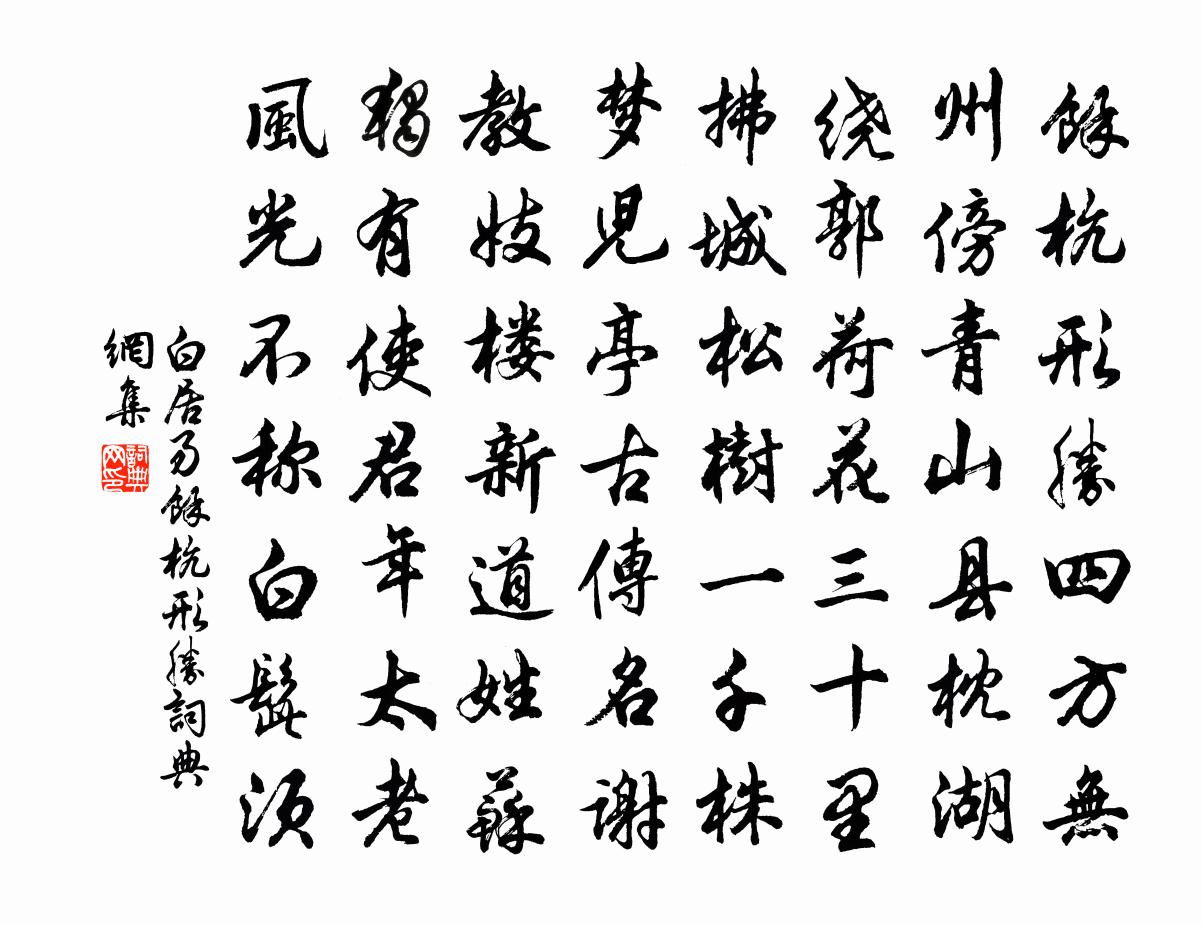 餘杭形勝四方無
州傍青山县枕湖
绕郭荷花三十里
拂城松樹一千株
梦児亭古傳名谢
教妓楼新道姓蘇
独有使君年太老
風光不称白髭须
白居易餘杭形勝詞典
網集
詞典
网印